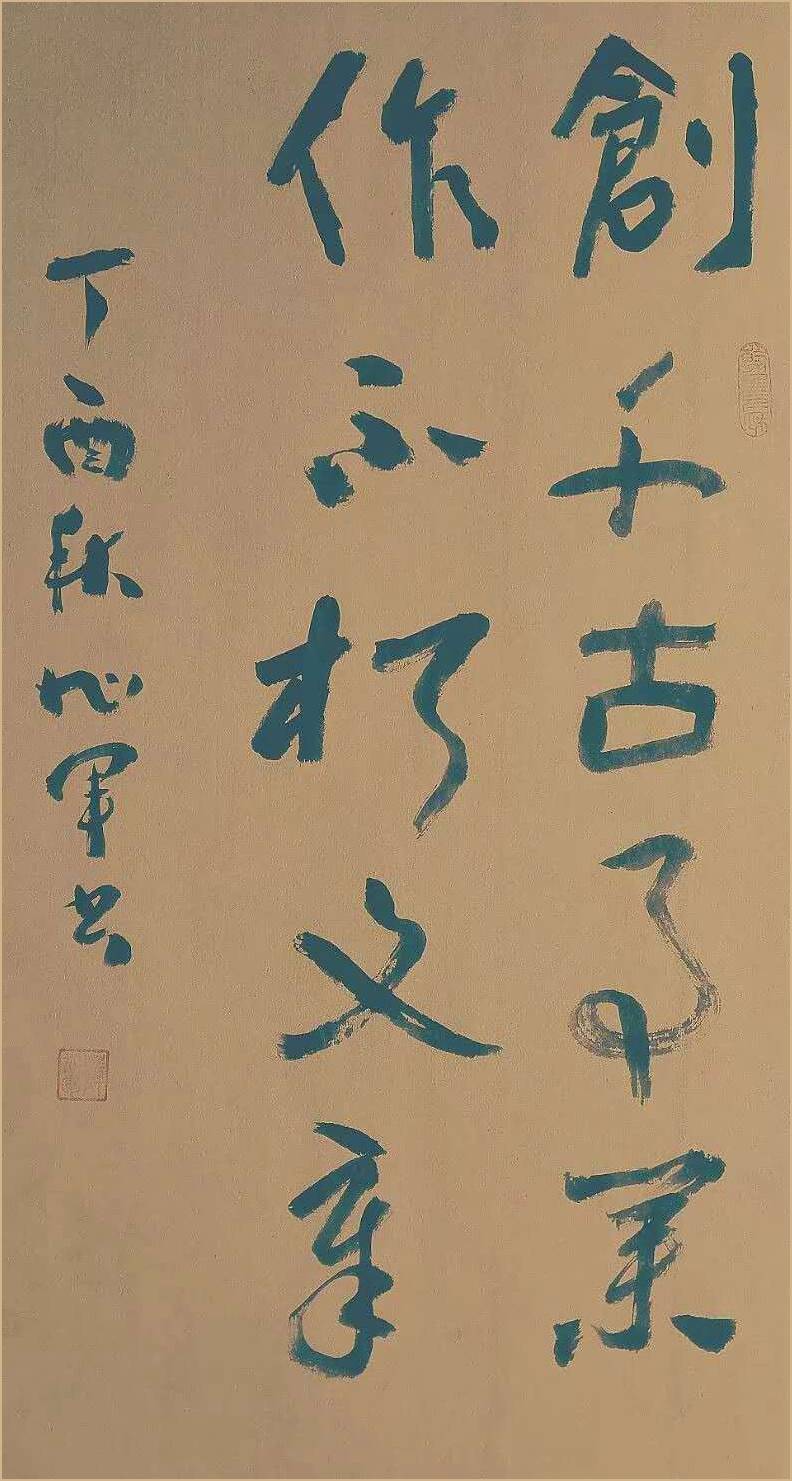 創千古事業
作不朽文章
丁酉秋 軍书